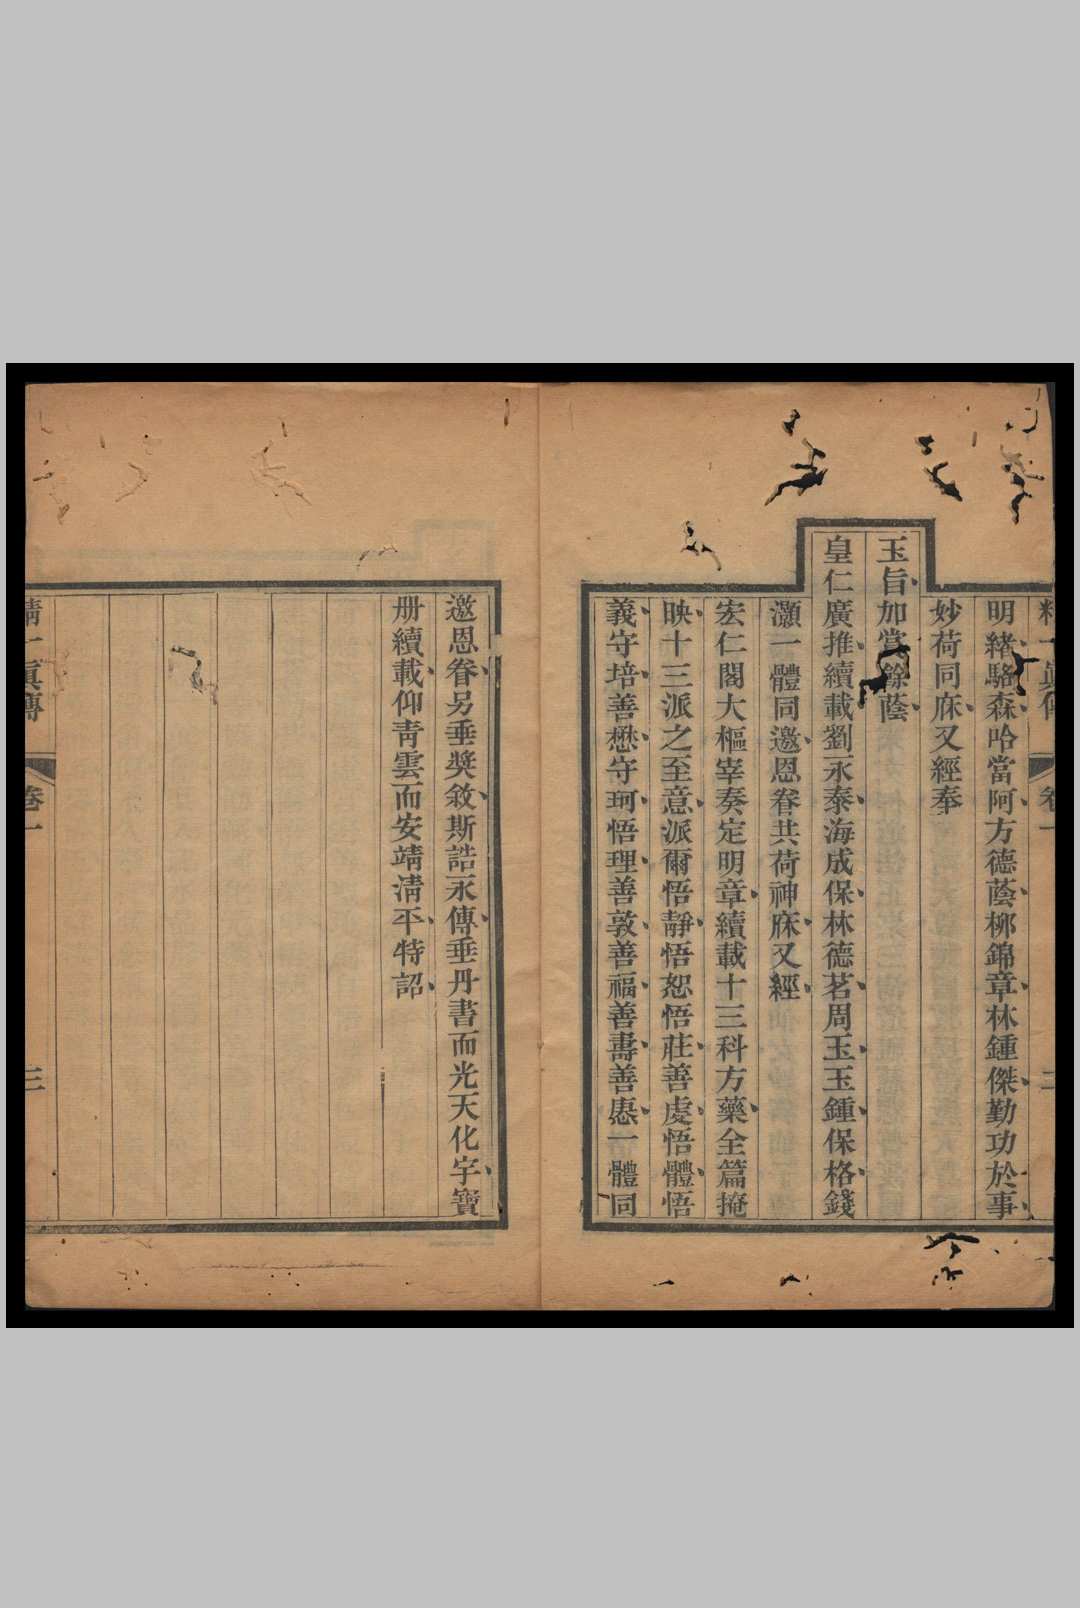 精一真傳 卷一 二
明緒駱森哈當阿方德蔭柳錦章林鍾傑勤功於事
妙荷同庥又經奉
玉旨加賞餘蔭
皇仁廣推續載劉永泰海成保林德茗周玉玉鍾保格錢
灝一體同邀恩眷共荷神庥又經
宏仁閣大樞宰奏定明章續載十三科方藥全篇掩
映十三派之至意派爾悟靜悟恕悟莊善處悟體悟
義守培善懋守珂悟理善敦善福善壽善慿一體同
邀恩眷另垂獎敘斯誥永傳垂丹書而光天化宇寶
册續載仰青雲而安靖清平特詔
精一真傳 卷一 三